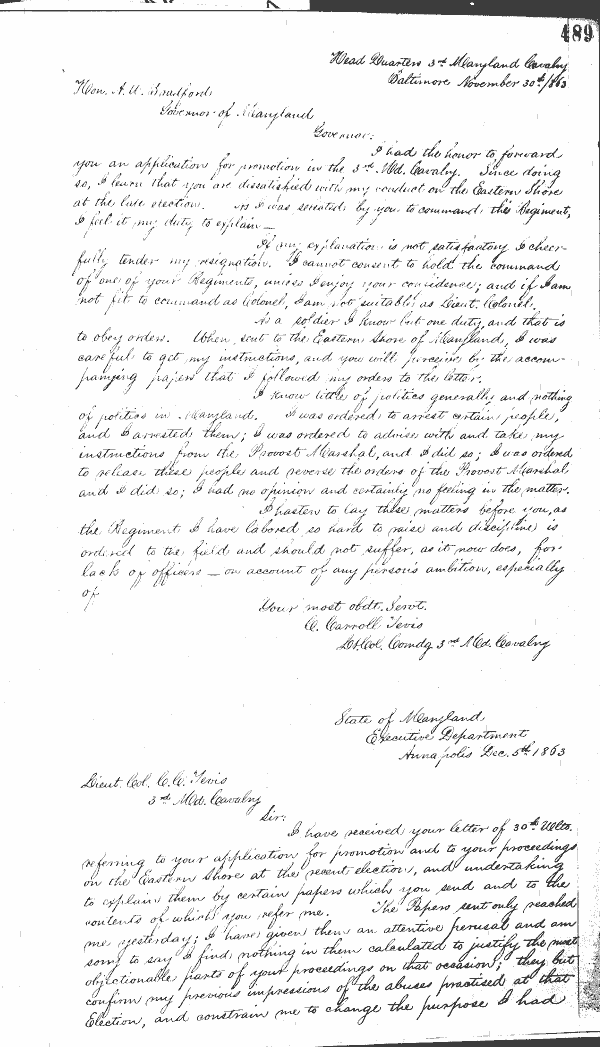 489
Head Quarters 3rd Maryland Cavalry
Baltimore November 30th/863
Hon. A. W. Bradford
Governor of Maryland
Governor:
I had the honor to forward
you an application for promotion in the 3rd Md. Cavalry. Since doing
so, I learn that you are dissatisfied with my conduct on the Eastern Shore
at the late election. As I was selected by you to command the Regiment,
I feel it my duty to explain—
If my explanation is not satisfactory I cheer-
fully tender my resignation. I cannot consent to hold the command
of one of your Regiments, unless I enjoy your confidence; and if I am
not fit to command as Colonel, I am not suitable as Lieut. Colonel.
As a soldier I know but one duty, and that is
to obey orders. When sent to the Eastern Shore of Maryland, I was
careful to get my instructions, and you will perceive by the accom-
panying papers that I followed my orders to the letter.
I know little of politics generally and nothing
of politics in Maryland. I was ordered to arrest certain people,
and I arrested them; I was ordered to advise with and take my
instructions from the Provost Marshal, and I did so; I was ordered
to release these people and reverse the orders of the Provost Marshal
and I did so; I had no opinion and certainly no feeling in the matter.
I hasten to lay these matters before you, as
the Regiment I have labored so hard to raise and discipline is
ordered to the field and should not suffer, as it now does, for
lack of officers — on account of any person's ambition, especially
of
Your most obdt. Servt.
C. Carroll Tevis
Lt. Col. Comdg 3rd Md. Cavalry
State of Maryland
Executive Department
Annapolis Dec. 5th 1863
Lieut. Col. C. C. Tevis
3rd Md. Cavalry
Sir:
I have received your letter of 30th Ulto.
referring to your application for promotion and to your proceedings
on the Eastern Shore at the recent election, and undertaking
to explain them by certain papers which you send and to the
contents of which you refer me. The Papers sent only reached
me yesterday; I have given them an attentive perusal and am
sorry to say I find nothing in them calculated to justify the most
objectionable parts of your proceedings on that occasion; they but
confirm my previous impressions of the abuses practised at that
Election, and constrain me to change the purpose I had